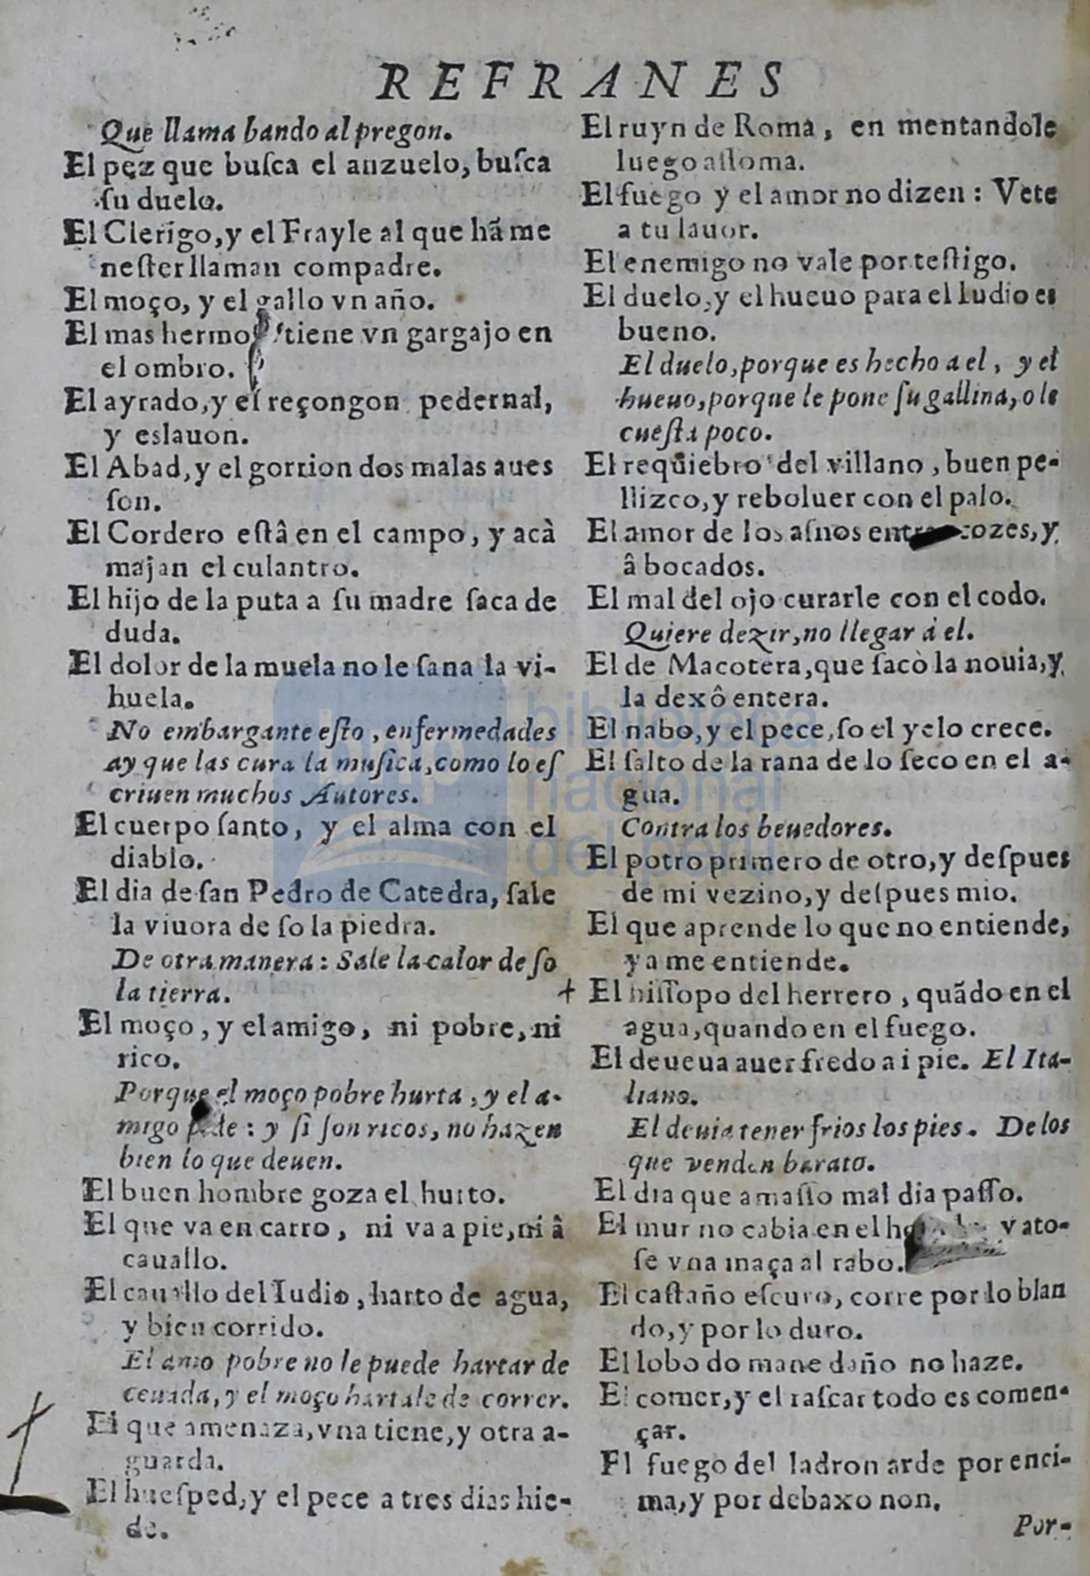 REFRANES
Que llama bando al pregon.
El pez que buſca el anzuelo, buſca
ſu duelo.
El Clerigo, y el Frayle al que hã me
neſter llaman compadre.
El moço, y el gallo vn año.
El mas hermo tiene vn gargajo en
el ombro.
El ayrado, y el reçongon pedernal,
y eslauon.
El Abad, y el gorrion dos malas aues
ſon.
El Cordero eſtâ en el campo, y acà
majan el culantro.
El hijo de la puta a ſu madre ſaca de
duda.
El dolor de la muela no le ſana la vi-
huela.
No embargante eſto, enfermedades
ay que las cura la muſica, como lo eſ
criuen muchos Autores.
El cuerpo ſanto, y el alma con el
diablo.
El dia de ſan Pedro de Catedra, ſale
la viuora de ſo la piedra.
De otra manera: Sale la calor de ſo
la tierra.
El moço, y el amigo, ni pobre, ni
rico.
Porque el moço pobre hurta, y el a-
migo pide: y ſi ſon ricos, no hazen
bien lo que deuen.
El buen hombre goza el hurto.
El que va en carro, ni va a pie, ni â
cauallo.
El cauallo del Iudio, harto de agua,
y bien corrido.
El amo pobre no le puede hartar de
ceuada, y el moço hartale de correr.
El que amenaza, vna tiene, y otra a-
guarda.
El hueſped, y el pece a tres dias hie-
de.
El ruyn de Roma, en mentandole
luego aſſoma.
El fuego y el amor no dizen: Vete
a tu lauor.
El enemigo no vale por teſtigo.
El duelo, y el hueuo para el Iudio es
bueno.
El duelo, porque es hecho a el, y el
hueuo, porque le pone ſu gallina, o le
cueſta poco.
El requiebro del villano, buen pe-
llizco, y reboluer con el palo.
El amor de los aſnos entra cozes, y
â bocados.
El mal del ojo curarle con el codo.
Quiere dezir, no llegar à el.
El de Macotera, que ſacò la nouia, y
la dexô entera.
El nabo, y el pece, ſo el yelo crece.
El ſalto de la rana de lo ſeco en el a-
gua.
Contra los beuedores.
El potro primero de otro, y deſpues
de mi vezino, y deſpues mio.
El que aprende lo que no entiende,
ya me entiende.
El hiſſopo del herrero, quãdo en el
agua, quando en el fuego.
El deueua auer fredo a i pie. El Ita-
liano.
El deuia tener frios los pies. De los
que venden barato.
El dia que amaſſo mal dia paſſo.
El mur no cabia en el y ato-
ſe vna maça al rabo.
El caſtaño eſcuro, corre por lo blan
do, y por lo duro.
El lobo do mane daño no haze.
El comer, y el raſcar todo es comen-
çar.
El fuego del ladron arde por enci-
ma, y por debaxo non.
Por-
biblioteca
nacional
del perú